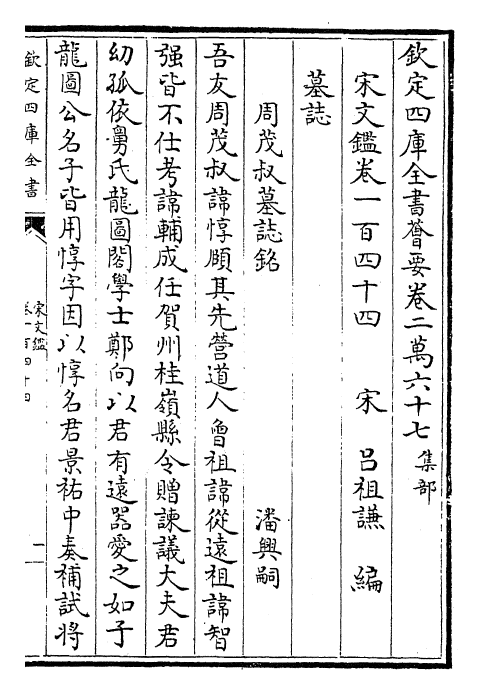 欽定四庫全書薈要卷二萬六十七 集部
宋文鑑卷一百四十四　宋　呂祖謙　編
墓誌
周茂叔墓誌銘　潘興嗣
吾友周茂叔諱惇頤其先營道人曾祖諱從遠祖諱智
强皆不仕考諱輔成任賀州桂嶺縣令贈諫議大夫君
幼孤依舅氏龍圖閣學士鄭向以君有遠器愛之如子
龍圖公名子皆用惇字因以惇名君景祐中奏補試將
欽定四庫全書
宋文鑑
卷一百四十四
一